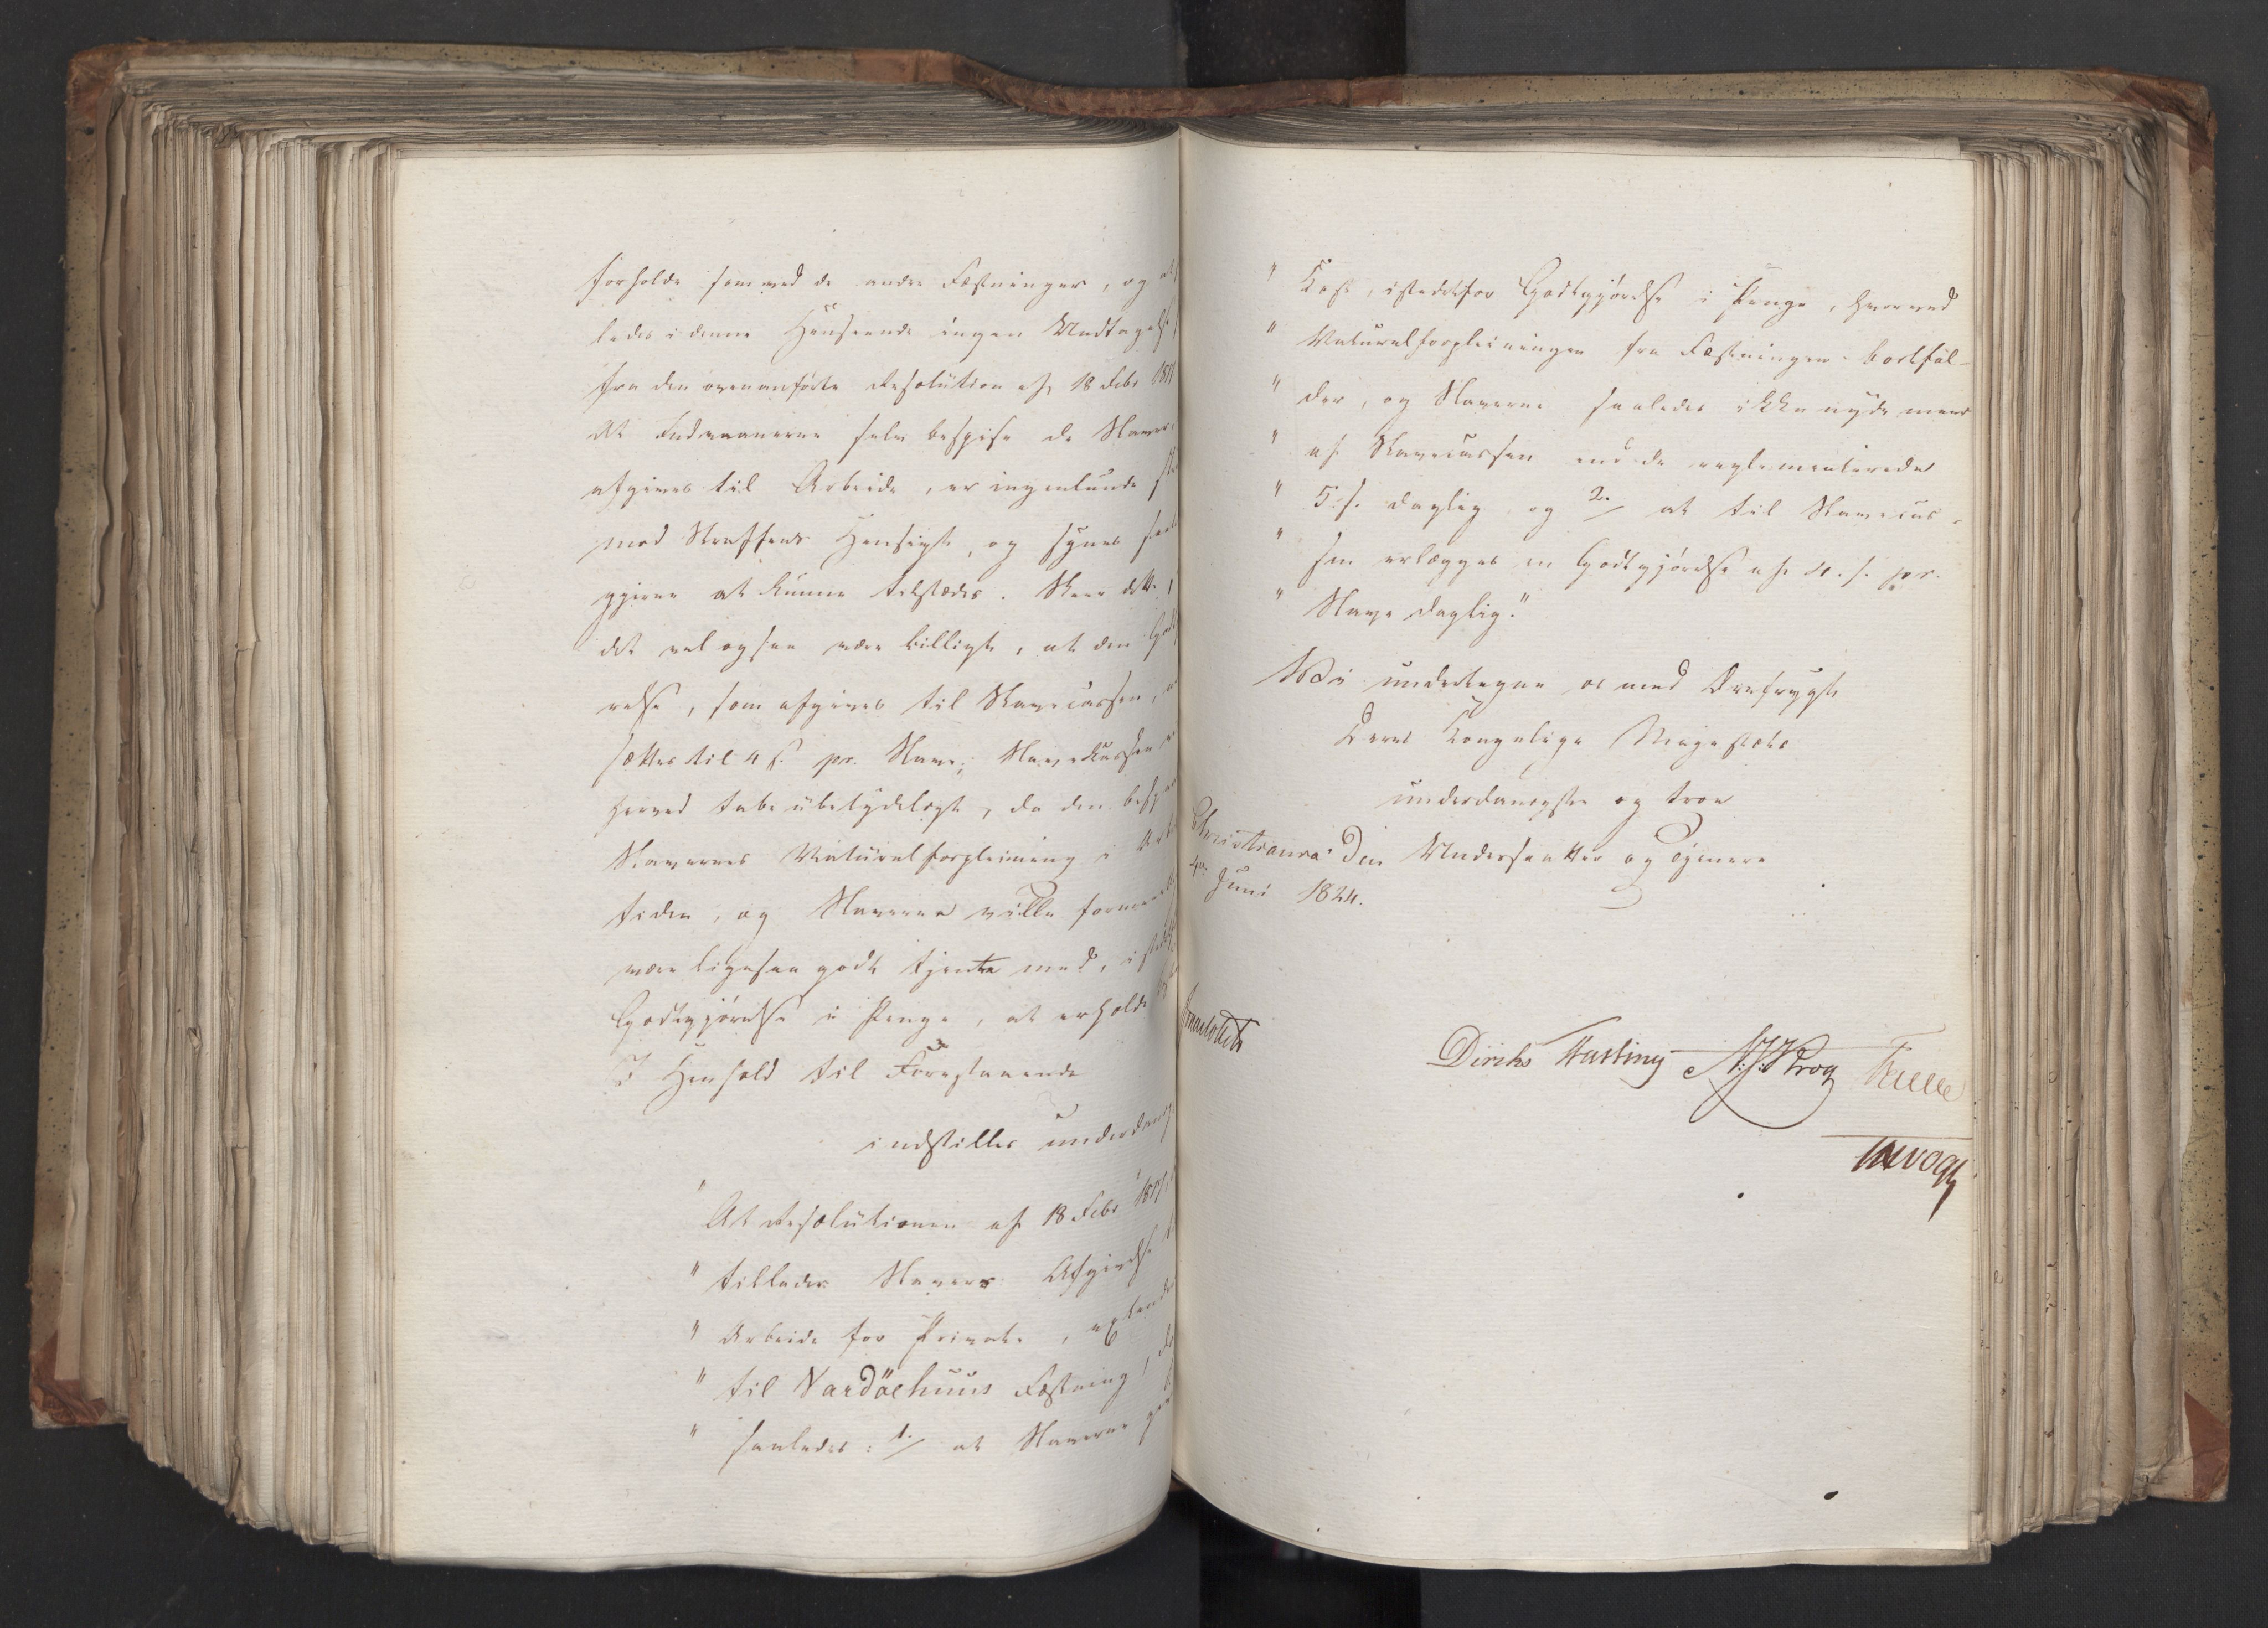 forholde som ved de andre Fæstninger, og at
ledes i denne Henseende ingen Undtagelse
fra den ovenanførte Resolution af 18 Febr 1817
At Indvaanerne selv bespise de Slaver,
afgives til Arbeide, er ingenlunde
mod Straffens Hensigt, og synes
gjerne at kunne tilstædes. Skeer dette,
det vel ogsaa være billigt, at den
relse, som afgives til Slavecassen,
sættes til 4 s. pr. Slave; Slavekassen
herved tabe übetydeligt, da den
Slavernes Naturalforpleining i
tiden, og Slaverne ville
være ligesaa godt tjente med, i
Godtgjørelse i Penge, at erholde
I Henhold til Forestaaende
indstilles underdanigst
" At Resolutionen af 18 Febr 1817,
" tillader Slavers Afgivelse
" Arbeide for Private,
" til Vardöehuus Fæstning,
" saaledes: 1./ at Slaverne
" Kost, istedetfor Godtgjørelse i Penge, hvorved
" Naturalforpleiningen fra Fæstningen bortfal-
" der, og Slaverne saaledes ikke nyde meer
" af Slavecassen end de reglementerede
" 5 s. daglig og 2./ at til Slavecas-
" sen erlægges en Godtgjörelse af 4. s. pr.
" Slave daglig."
Vi undertegne os med Ærefrygt
Deres Kongelige Majestæts
underdanigste og troe
Christiania den Undersaatter og Tjenere
4de Juni 1824.
Diriks Hasting Krog